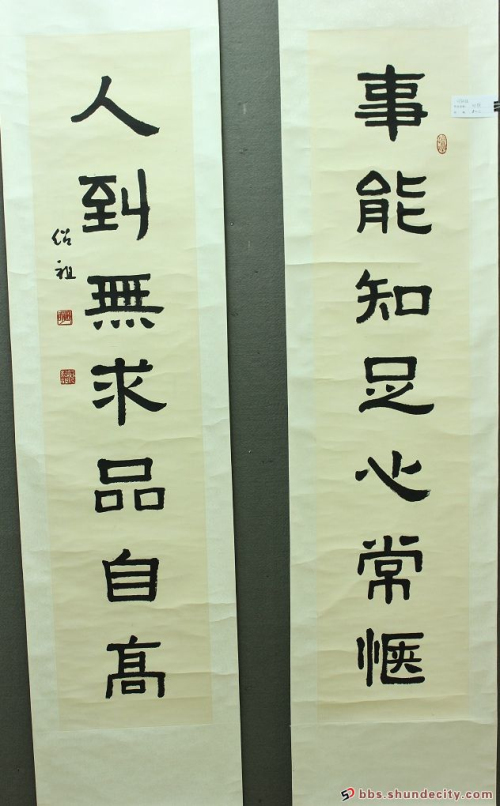 事能知足心常愜
人到無求品自高
紹祖
bbs.shundecity.com